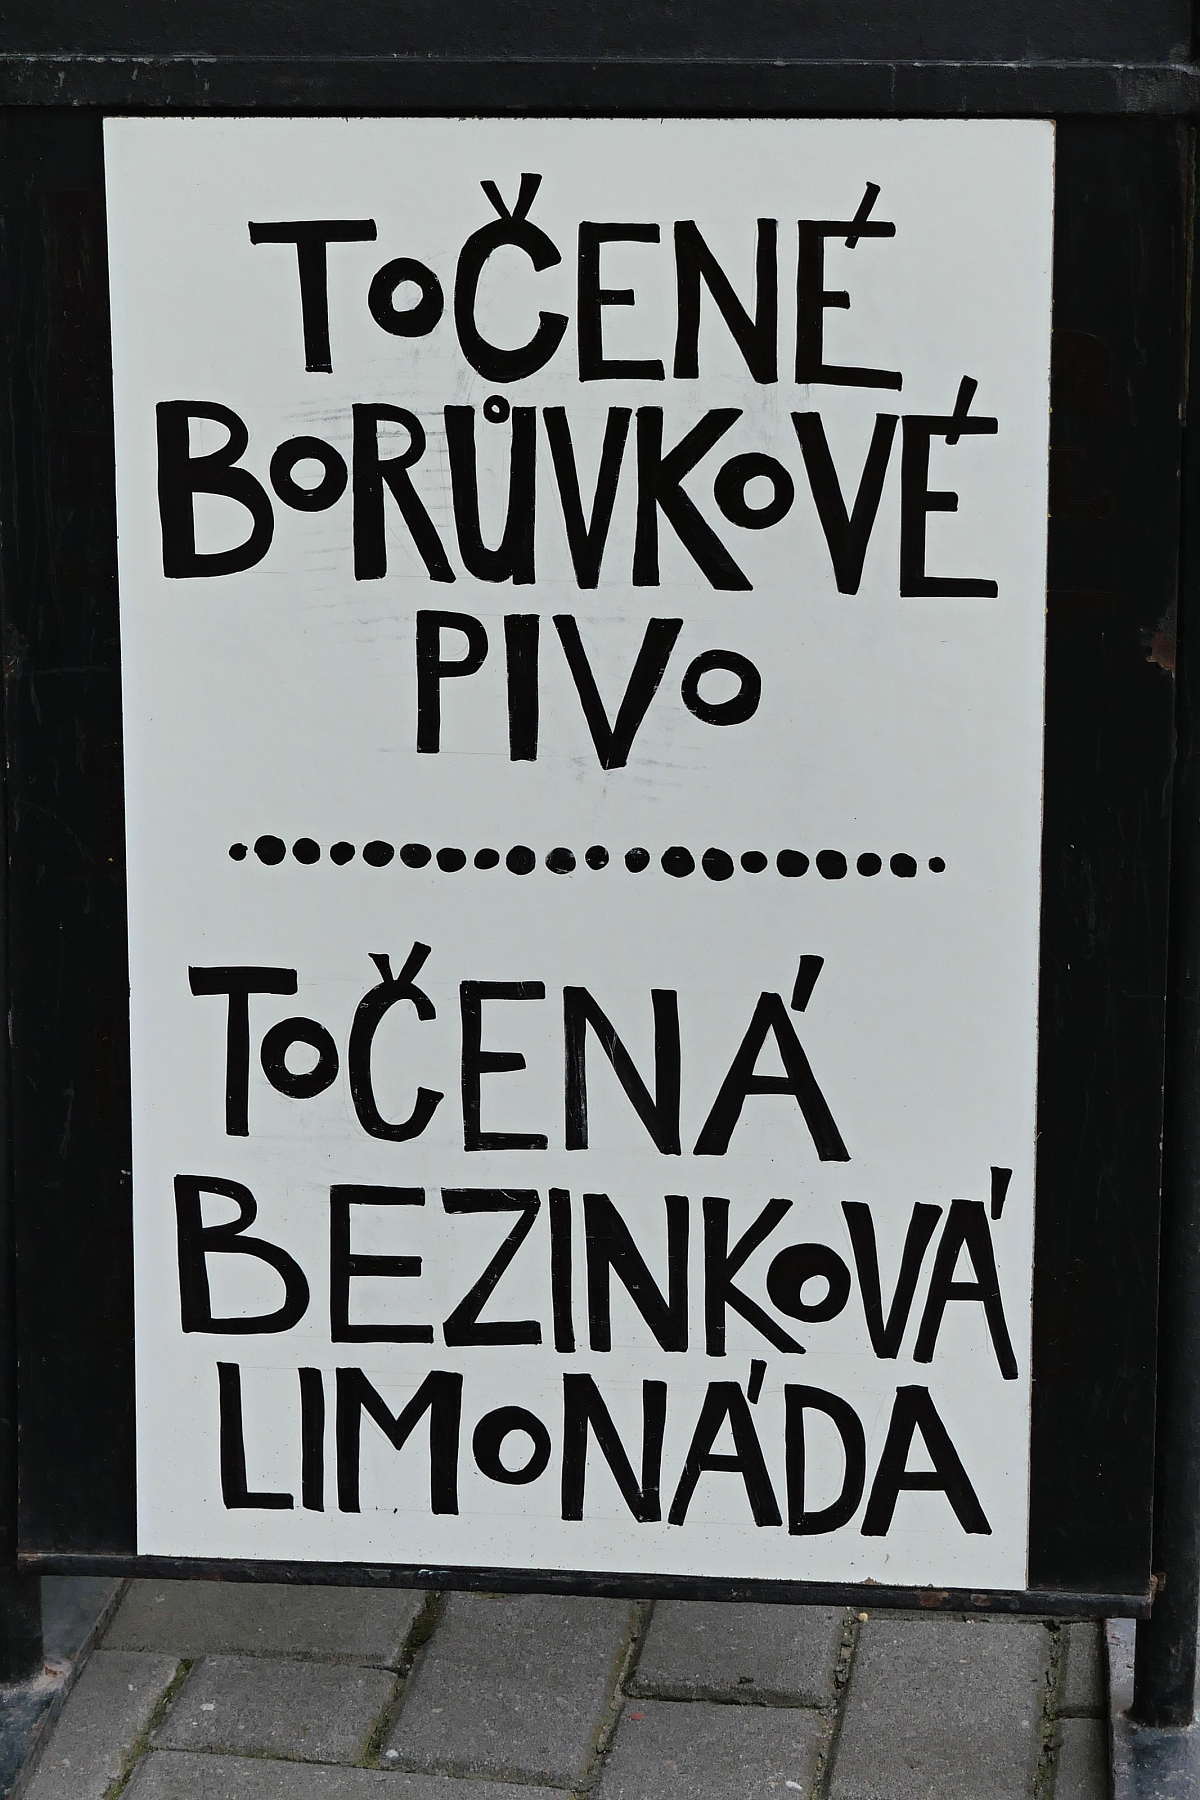 TOČENÉ
BORŮVKOVÉ
PIVO
TOČENÁ
BEZINKOVÁ
LIMONÁDA